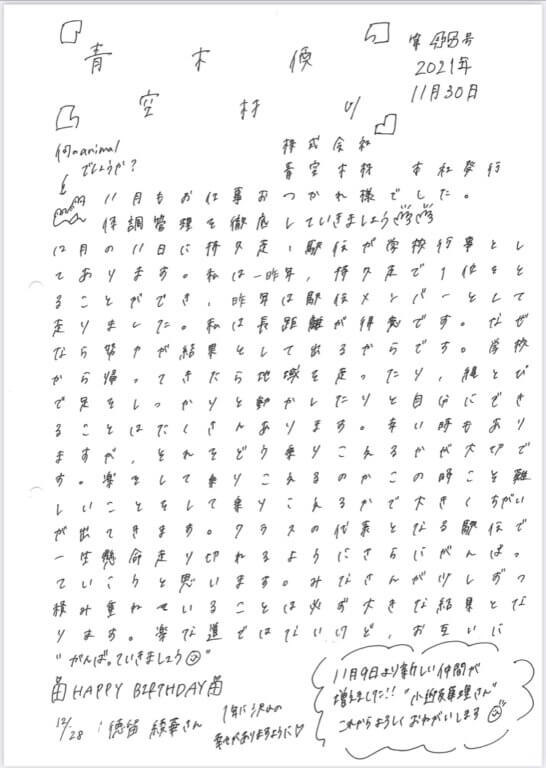 青木便
空材り
第458号
2021年
11月30日
株式会社
青空木材 本社発行
何のanimal
でしょうか?
11月もお仕事おつかれ様でした。
体調管理を徹底していきましょう
12月の11日に持久走、駅伝が学校行事とし
てあります。私は一昨年、持久走で1位をと
ることができ、昨年は駅伝メンバーとして
走りました。私は長距離が得意です。なぜ
なら努力が結果として出るからです。学校
から帰ってきたら地域を走ったり、縄とび
で足をしっかりと動かしたりと自分にでき
ることはたくさんあります。辛い時もあり
ますが、それをどう乗りこえるかが大切で
す。楽をして乗りこえるのかこの時こそ難
しいことをして乗りこえるかで大きくちがい
が出てきます。クラスの代表となる駅伝で
一生懸命走り切れるようにさらにがんばっ
ていこうと思います。みなさんが少しずつ
積み重ねていることは必ず大きな結果とな
ります。楽な道ではないけど、お互いに
"がんばっていきましょう"
HAPPY BIRTHDAY
12/28 : 徳留 綾華さん
1年に沢山の
幸せがありますように♡
11月9日より新しい仲間が
増えました!! "小 さん"
これからよろしくおねがいします